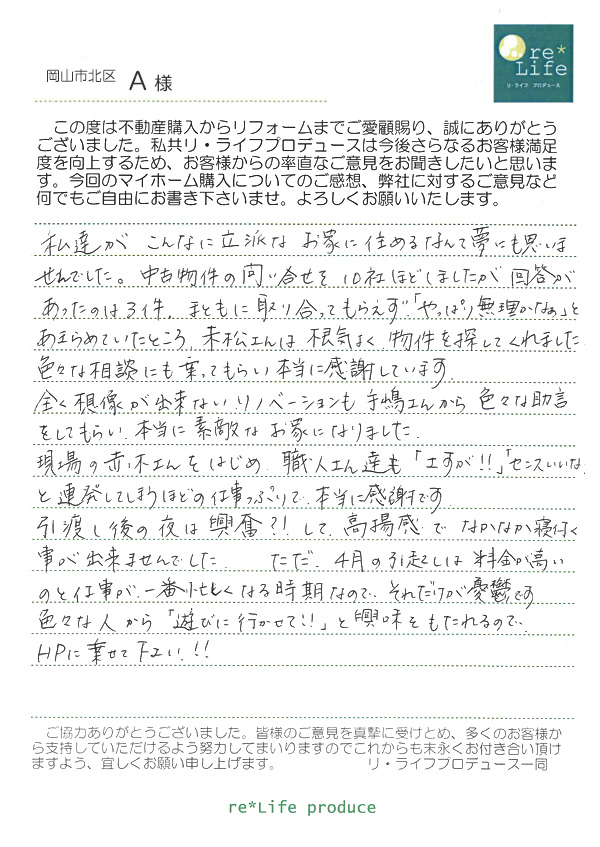 re*
Life
リ・ライフ プロデュース
岡山市北区 A 様
この度は不動産購入からリフォームまでご愛顧賜り、誠にありがとう
ございました。私共リ・ライフプロデュースは今後さらなるお客様満足
度を向上するため、お客様からの率直なご意見をお聞きしたいと思いま
す。今回のマイホーム購入についてのご感想、弊社に対するご意見など
何でもご自由にお書き下さいませ。よろしくお願いいたします。
私達が こんなに立派な お家に住めるなんて夢にも思いま
せんでした。中古物件の問い合せを 10社ほどしましたが 回答が
あったのは3件。まともに取り合ってもらえず「やっぱり無理かなぁ」と
あきらめていたところ、末松さんは 根気よく 物件を探してくれました
色々な相談にも乗ってもらい本当に感謝しています。
全く想像が出来ないリノベーションも 手嶋さんから 色々な助言
をしてもらい、本当に素敵なお家になりました。
現場の赤木さんをはじめ、職人さん達も「さすが!!」「センスいいな
と連発してしまうほどの仕事っぷりで、本当に感謝です。
引渡し後の夜は興奮?!して、高揚感でなかなか寝付く
事が出来ませんでした。 ただ、4月の引越しは 料金が高い
のと仕事が、一番忙しくなる時期なので、それだけが憂鬱です
色々な人から「遊びに行かせて!!」と興味をもたれるので、
HPに乗せて下さい!!
ご協力ありがとうございました。皆様のご意見を真摯に受けとめ、多くのお客様か
ら支持していただけるよう努力してまいりますのでこれからも末永くお付き合い頂け
ますよう、宜しくお願い申し上げます。 リ・ライフプロデュース一同
re*Life produce